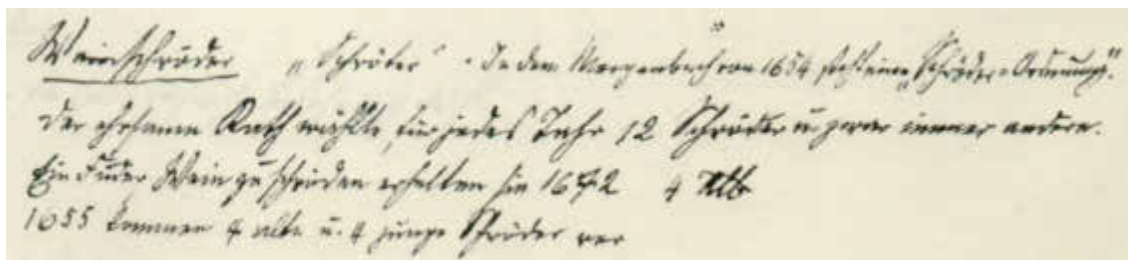 Weinschröder „Schröter“. In dem Morgenbuch von 1654 steht eine „Schröder-Ordnung“.
Der ehrsame Rath wählte für jedes Jahr 12 Schröder u. zwar immer andere.
Ein Fuder Wein zu schroden erhalten sie 1672 4 Alb
1655 kommen 4 alte u. 4 junge Schröder vor